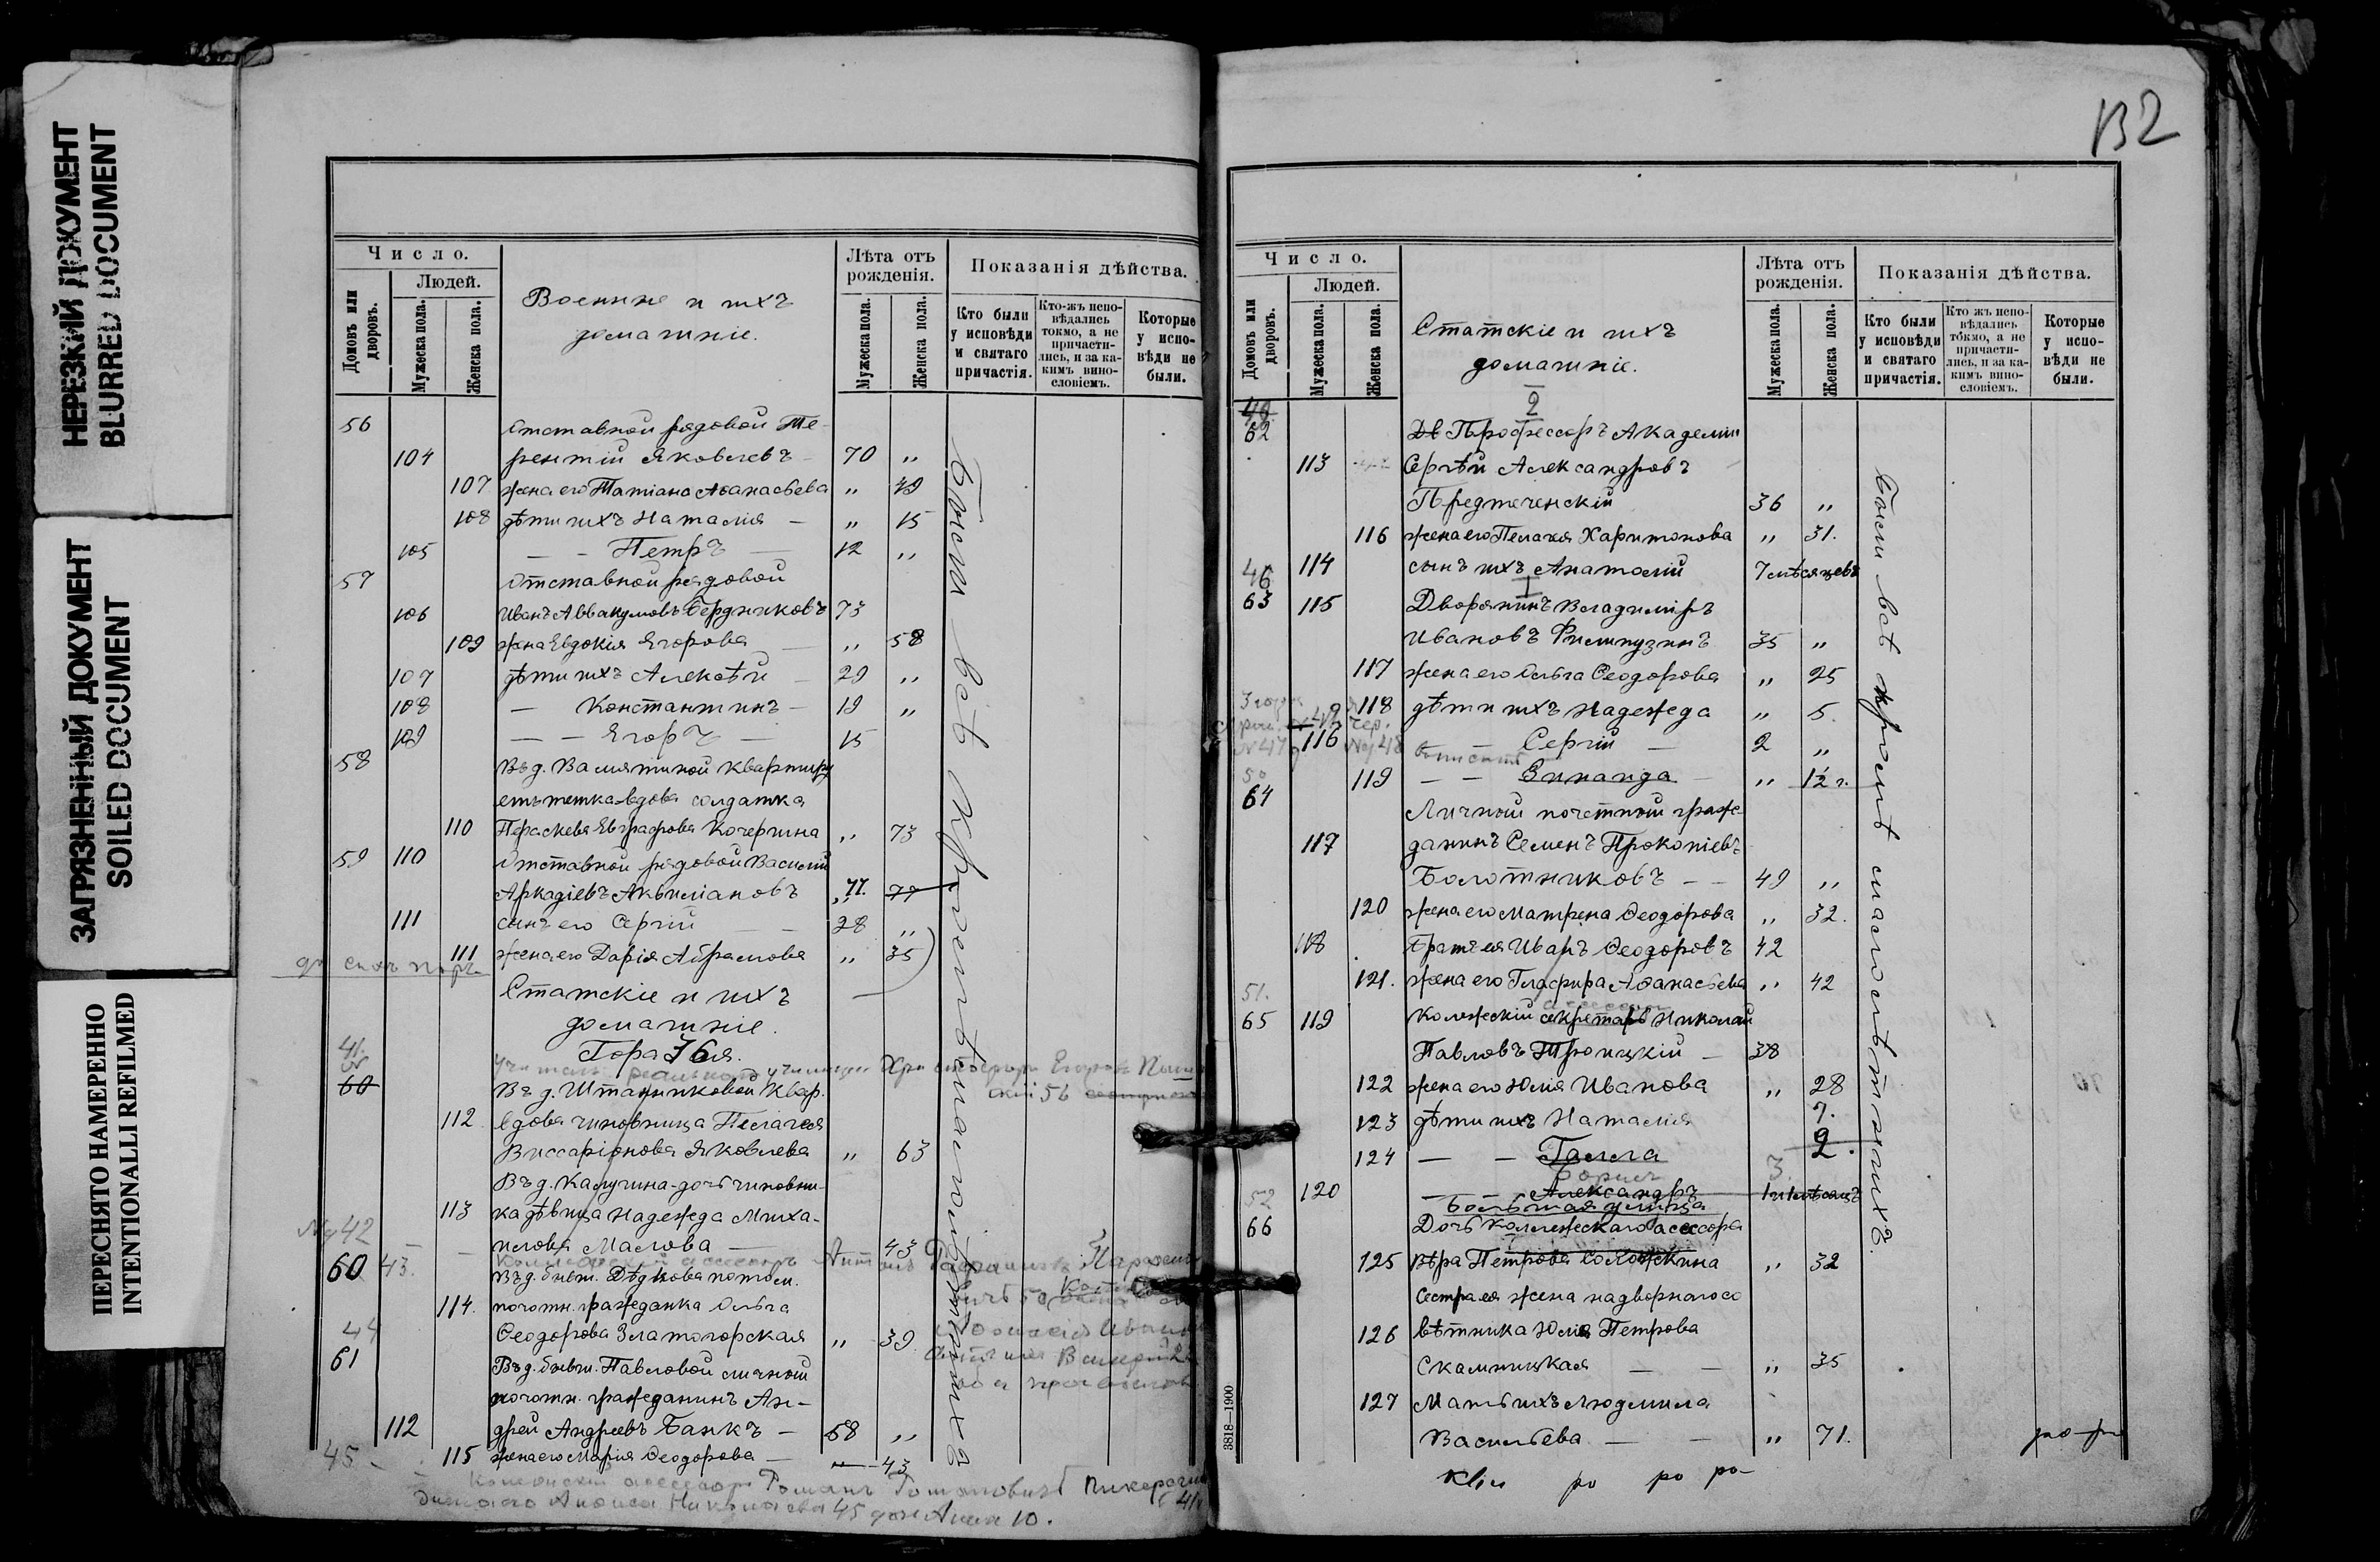 НЕРЕЗКИЙ ДОКУМЕНТ
BLURRED DOCUMENT
ЗАГРЯЗНЕННЫЙ ДОКУМЕНТ
SOILED DOCUMENT
ПЕРЕСНЯТО НАМЕРЕННО
INTENTIONALLI REFILMED
Число.
Людей.
Домовъ или дворовъ.
Мужеска пола.
Женска пола.
Военные и ихъ
домашніе.
Лѣта отъ рожденія.
Мужеска пола.
Женска пола.
Показанія дѣйства.
Кто были у исповѣди и святаго причастія.
Кто-жъ исповѣдались токмо, а не причастились, и за какимъ винословіемъ.
Которые у исповѣди не были.
56 Отставной рядовой Те-
104 рентій Яковлевъ 70 „
107 жена его Татіана Аѳанасьева „ 49
108 дѣти ихъ Наталія — „ 15
105 — — Петръ — 12 „
57 Отставной рядовой
106 Иванъ Аввакумовъ Бердниковъ 73
109 жена Евдокія Егорова „ 58
107 дѣти ихъ Алексѣй — 29 „
108 — Константинъ — 19 „
109 — — Егоръ — 15
58 Въ д. Валятиной квартиру
етъ тетка вдова солдатка
110 Параскева Евграфова Кочергина „ 73
59 110 Отставной рядовой Василій
Аркадіевъ Аквиліановъ „ 77. 77
111 сынъ его Сергій — 28 „
111 жена его Дарія Абрамова „ 35
Статскіе и ихъ
домашніе.
Гора 76я.
41.
60 Въ д. Штанниковой Квар.
112 вдова чиновница Пелагея
Виссаріонова Яковлева „ 63
Въ д. Калугина-дочь чиновни-
113 ка дѣвица Надежда Миха-
№ 42
илова Маслова — 43
60 43. Въ д. бывш. Дѣдкова потом.
114. почотн. гражданка Ольга
44 Ѳеодорова Златогорская „ 39
61 Въ д. бывш. Павловой личной
почотн. гражданинъ Ан-
112 дрей Андреевъ Банкъ — 58 „
115 жена его Марія Ѳеодорова — „ 43
45
Романъ Романовичъ
Николаева 45 дочь Анна 10.
Были всѣ кромѣ малолѣтнихъ
132
Число.
Людей.
Домовъ или дворовъ.
Мужеска пола.
Женска пола.
Статскіе и ихъ
домашніе.
Лѣта отъ рожденія.
Мужеска пола.
Женска пола.
Показанія дѣйства.
Кто были у исповѣди и святаго причастія.
Кто жъ исповѣдались токмо, а не причастились, и за какимъ винословіемъ.
Которые у исповѣди не были.
2
62 Дв Профессоръ Академіи
113 Сергѣй Александровъ
Предтеченскій 36 „
116 жена его Пелагея Харитонова „ 31.
46 114 сынъ ихъ Анатолій 7 мѣсяцевъ
63 115 Дворянинъ Владиміръ
Ивановъ Филипузинъ 35 „
117 жена его Ольга Ѳеодорова „ 25
118 дѣти ихъ Надежда „ 5.
116 — — Сергій — 2 „
119 — — Зинаида — „ 1½ г.
50
64 Личной почетной граж-
117 данинъ Семенъ Прокопіевъ
Болотниковъ — — 49 „
120 жена его Матрена Ѳеодорова „ 32.
118 Братъ ея Иванъ Ѳеодоровъ 42
121. жена его Глафира Аѳанасьева „ 42
51.
65 119 Колежскій секретарь Николай
Павловъ Троицкій — 38
122 жена его Юлія Иванова „ 28
123 дѣти ихъ Наталія 7.
124 — — Галла 2.
Борисъ 3
120 — — Александръ 1 мѣсяцъ
52 Большая улица
66 Дочь коллежскаго ассесора
125 Вѣра Петрова Соложкина „ 32
Сестра ея жена надворнаго со
126 вѣтника Юлія Петрова
Скалницкая — — „ 35
127 Мать ихъ Людмила
Васильева — — „ 71.
Были всѣ кромѣ малолѣтнихъ.
3818—1900